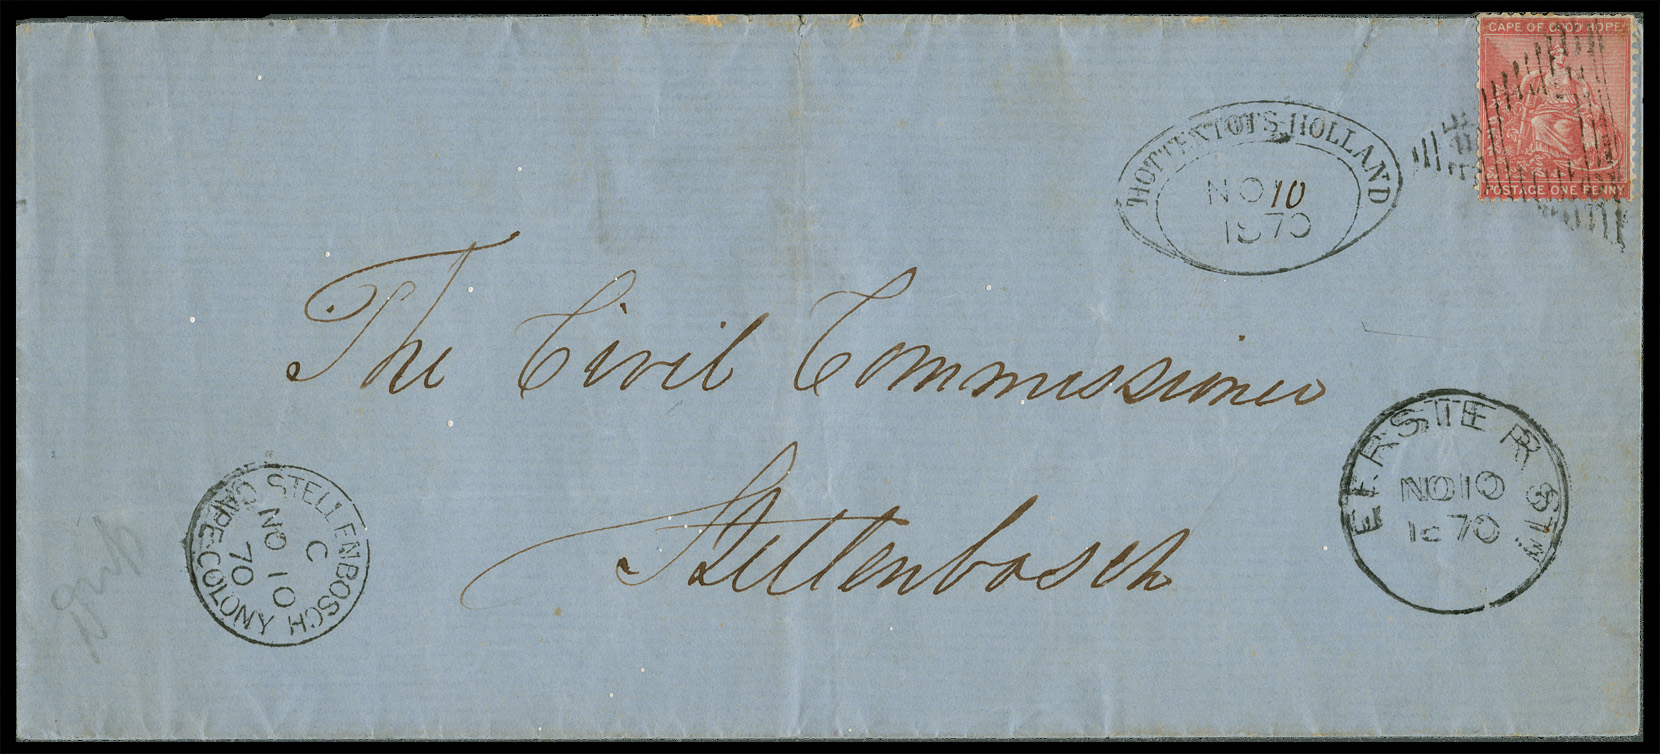 CAPE OF GOOD HOPE
POSTAGE ONE PENNY
HOTTENTOTS HOLLAND
NO 10
1870
The Civil Commissioner
Stellenbosch
EERSTE R. STn
NO 10
1870
STELLENBOSCH
CAPE-COLONY
C
NO 10
70